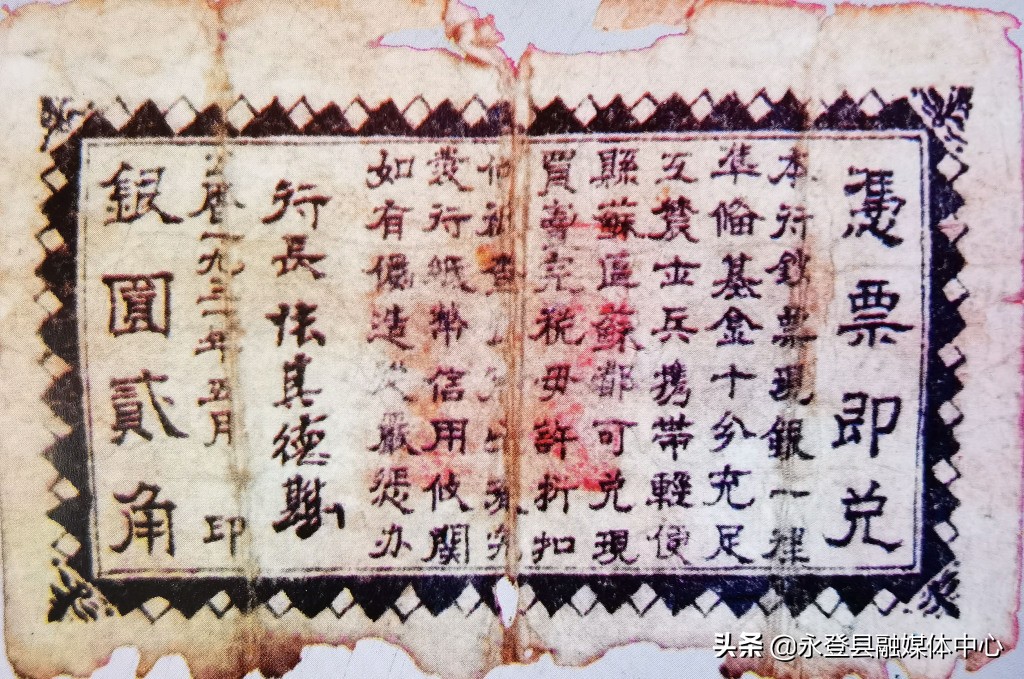 憑票即兑
本行鈔票現銀一
準俻基金十分充足
工農士兵携帶輕便
縣蘇區蘇都可兑現
買賣完税毋許折扣
查 究
發行紙幣信用攸關
如有偽造 嚴懲办
行長 張其德
公曆一九三一年五月 印
銀圓貳角
头条 @永登县融媒体中心